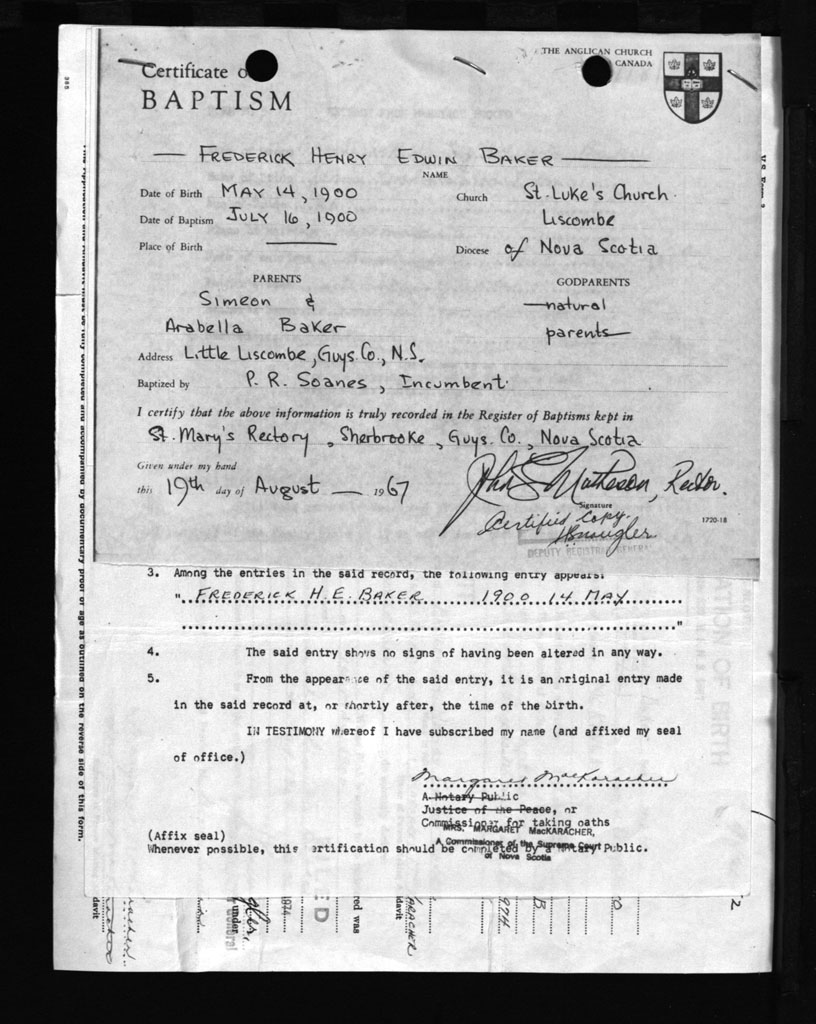 THE ANGLICAN CHURCH
CANADA
Certificate o
BAPTISM
FREDERICK HENRY EDWIN BAKER
NAME
Date of Birth MAY 14, 1900
Church St. Luke's Church
Date of Baptism JULY 16, 1900
Liscombe
Place of Birth
Diocese of Nova Scotia
PARENTS
GODPARENTS
Simeon &
natural
Arabella Baker
parents
Address Little Liscombe, Guys. Co., N.S.
Baptized by P. R. Soanes, Incumbent
I certify that the above information is truly recorded in the Register of Baptisms kept in
St. Mary's Rectory, Sherbrooke, Guys. Co., Nova Scotia
Given under my hand
this 19th day of August 1967
Matheson, Rector.
Signature
1720-18
Certified Copy.
DEPUTY REGISTRAR GENERAL
3. Among the entries in the said record, the following entry appears:
"..FREDERICK H. E. BAKER 1900 14 MAY
"
4. The said entry shows no signs of having been altered in any way.
5. From the appearance of the said entry, it is an original entry made
in the said record at, or shortly after, the time of the birth.
IN TESTIMONY whereof I have subscribed my name (and affixed my seal
of office.)
Margaret MacKaracher
A Notary Public
Justice of the Peace, or
Commissioner for taking oaths
MRS. MARGARET MacKARACHER,
(Affix seal)
A Commissioner of the Supreme Court
of Nova Scotia
Whenever possible, this certification should be completed by a Notary Public.